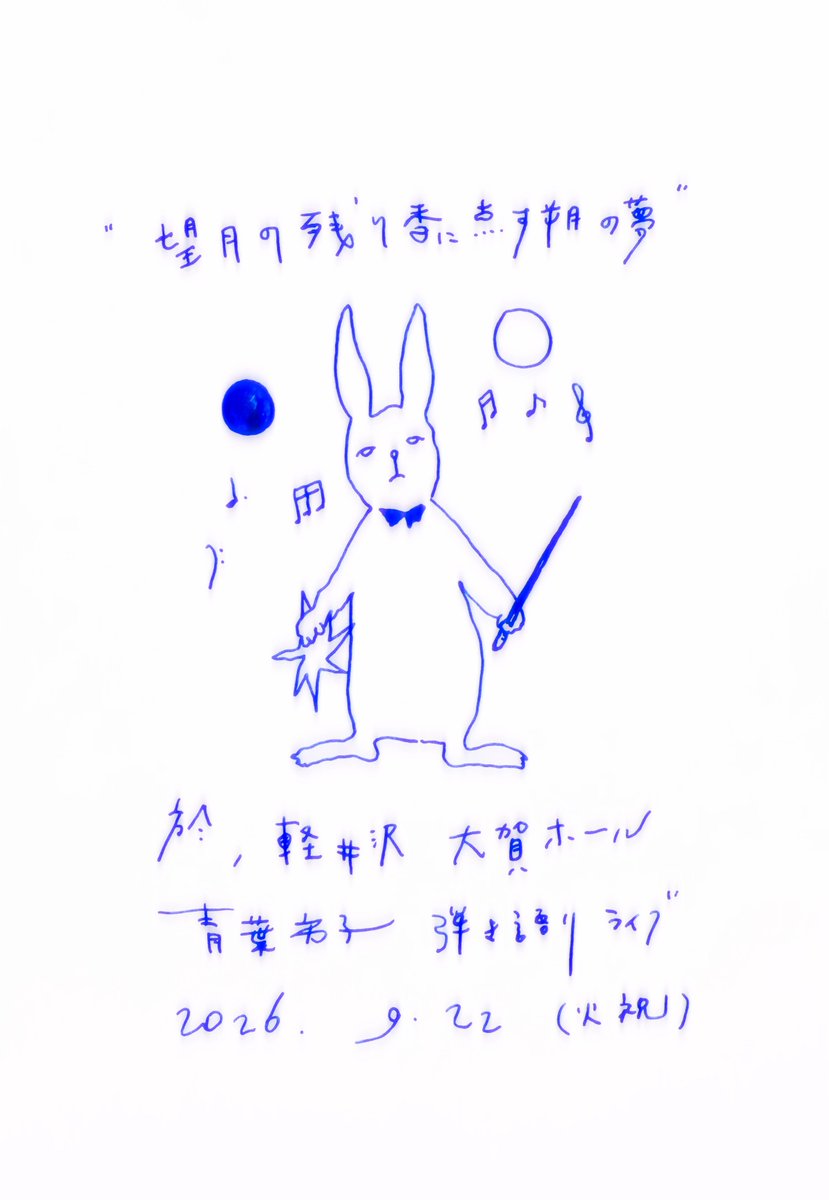 “望月の残り香に点す朔の夢”
於，軽井沢 大賀ホール
青葉市子 弾き語りライブ
2026. 9. 22 (火祝)